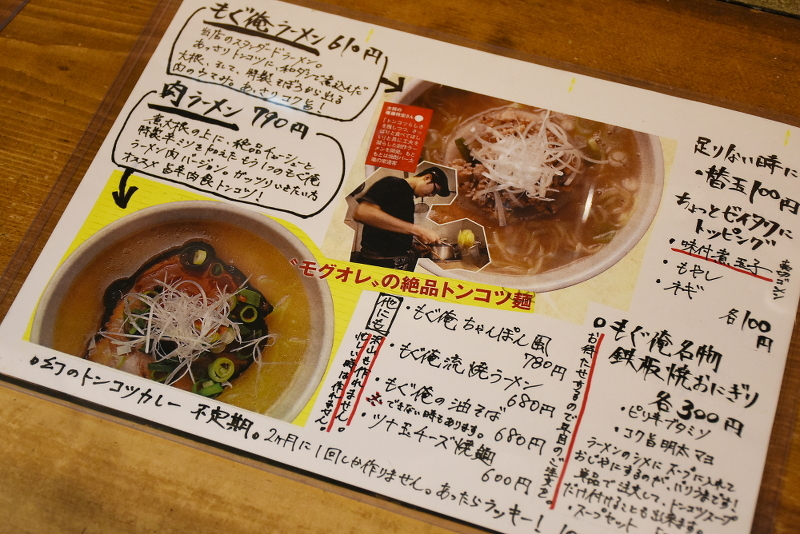 もぐ俺ラーメン 610円
当店のスタンダードラーメン。
あっさりトンコツに、和ダシで煮込んだ
大根、そして、特製そぼろから出る
肉のうまみ。あっさりコク旨!
肉ラーメン 790円
煮大根の上に、絶品チャーシューと
ラーメン肉バージョン。ガッツリいきたい方
オススメ 肉食トンコツ!
〝モグオレ〟の絶品トンコツ麺
足りない時に
・替玉100円
ちょっとゼイタクに
トッピング
・味付煮玉子
・もやし
・ネギ
各100円
他にも
・もぐ俺ちゃんぽん風
780円
・もぐ俺流焼ラーメン
680円
・もぐ俺の油そば
できない時もあります。 680円
・ツナ玉チーズ焼麺
600円
沢山も作れません。
忙しい時は作れません。
もぐ俺名物
鉄板焼おにぎり
各300円
・ピリ辛ブタミソ
・コク旨明太マヨ
ラーメンのシメにスープに入れて
おじやにするのが、バリうまです!
単品で注文して、トンコツスープ
だけ付けることも出来ます。
・スープセット
お待たせするので早目のご注文を。
幻のトンコツカレー 不定期。2ヶ月に1回しか作りません。あったらラッキー!